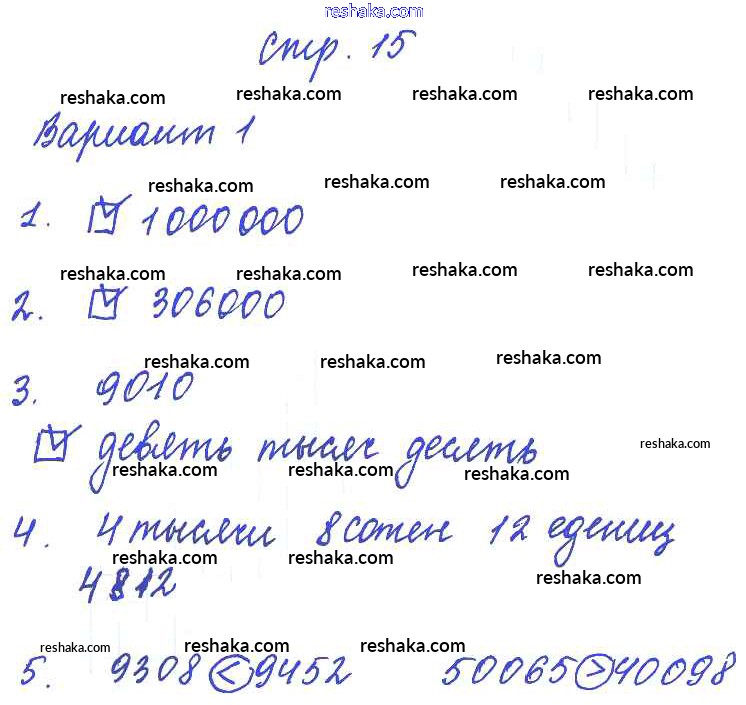 reshaka.com
стр. 15
reshaka.com reshaka.com reshaka.com reshaka.com
Вариант 1
reshaka.com reshaka.com reshaka.com
1. ☑ 1000000
reshaka.com reshaka.com reshaka.com reshaka.com
2. ☑ 306000
reshaka.com reshaka.com reshaka.com
3. 9010
☑ девять тысяч десять reshaka.com
reshaka.com reshaka.com reshaka.com
4. 4 тысячи 8 сотен 12 едениц
reshaka.com reshaka.com reshaka.com
4812
reshaka.com reshaka.com reshaka.com
5. 9308 < 9452 50065 > 40098